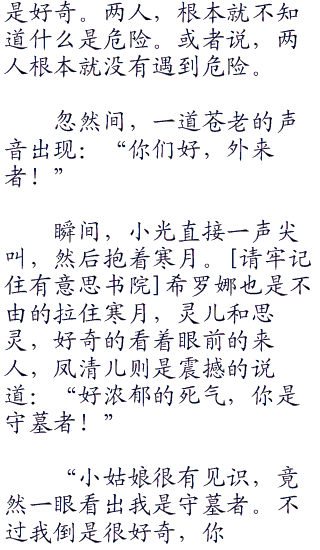 是好奇。两人，根本就不知
道什么是危险。或者说，两
人根本就没有遇到危险。
忽然间，一道苍老的声
音出现：“你们好，外来
者！”
瞬间，小光直接一声尖
叫，然后抱着寒月。[请牢记
住有意思书院]希罗娜也是不
由的拉住寒月，灵儿和思
灵，好奇的看着眼前的来
人，凤清儿则是震撼的说
道：“好浓郁的死气，你是
守墓者！”
“小姑娘很有见识，竟
然一眼看出我是守墓者。不
过我倒是很好奇，你